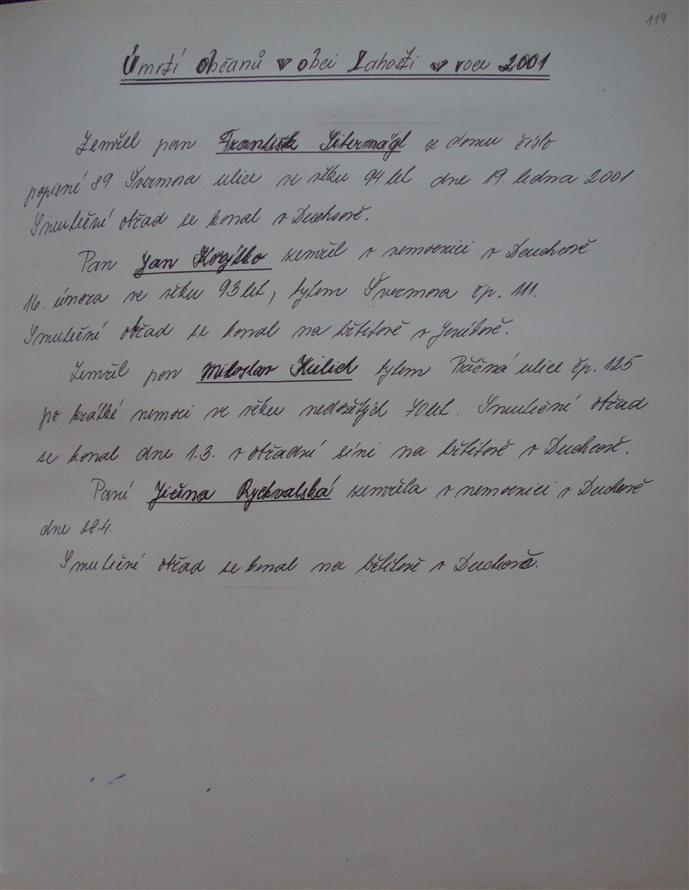 119
Úmrtí občanů v obci Lahošti v roce 2001
Zemřel pan František Sitermágl z domu číslo
popisné 89 Švermova ulice ve věku 94 let dne 19. ledna 2001
Smuteční obřad se konal v Duchcově.
Pan Jan zemřel v nemocnici v Douchcově
16. února ve věku 93 let, bytem Švermova čp. 111.
Smuteční obřad se konal na hřbitově v Jeníkově.
Zemřel pan Miloslav Kulich bytem Příčná ulice čp. 125
po krátké nemoci ve věku nedožitých 70 let. Smuteční obřad
se konal dne 1.3. v obřadní síni na hřbitově v Duchcově.
Paní Jiřina Rychvalská zemřela v nemocnici v Duchcově
dne 28.4.
Smuteční obřad se konal na hřbitově v Duchcově.